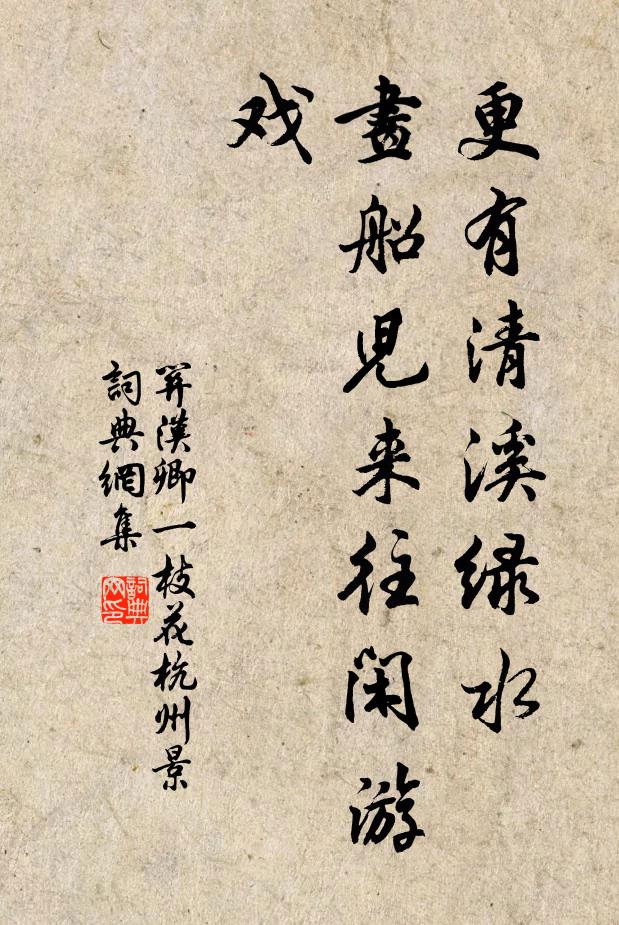 更有清溪绿水
畫船児来往閑游
戏
関漢卿一枝花杭州景
詞典網集
詞典
网印